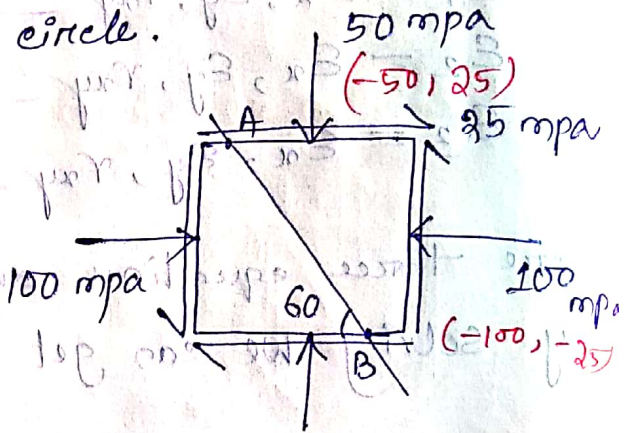 circle.
50 mpa
(-50, 25)
A
25 mpa
100 mpa
60
100 mpa
B
(-100, -25)